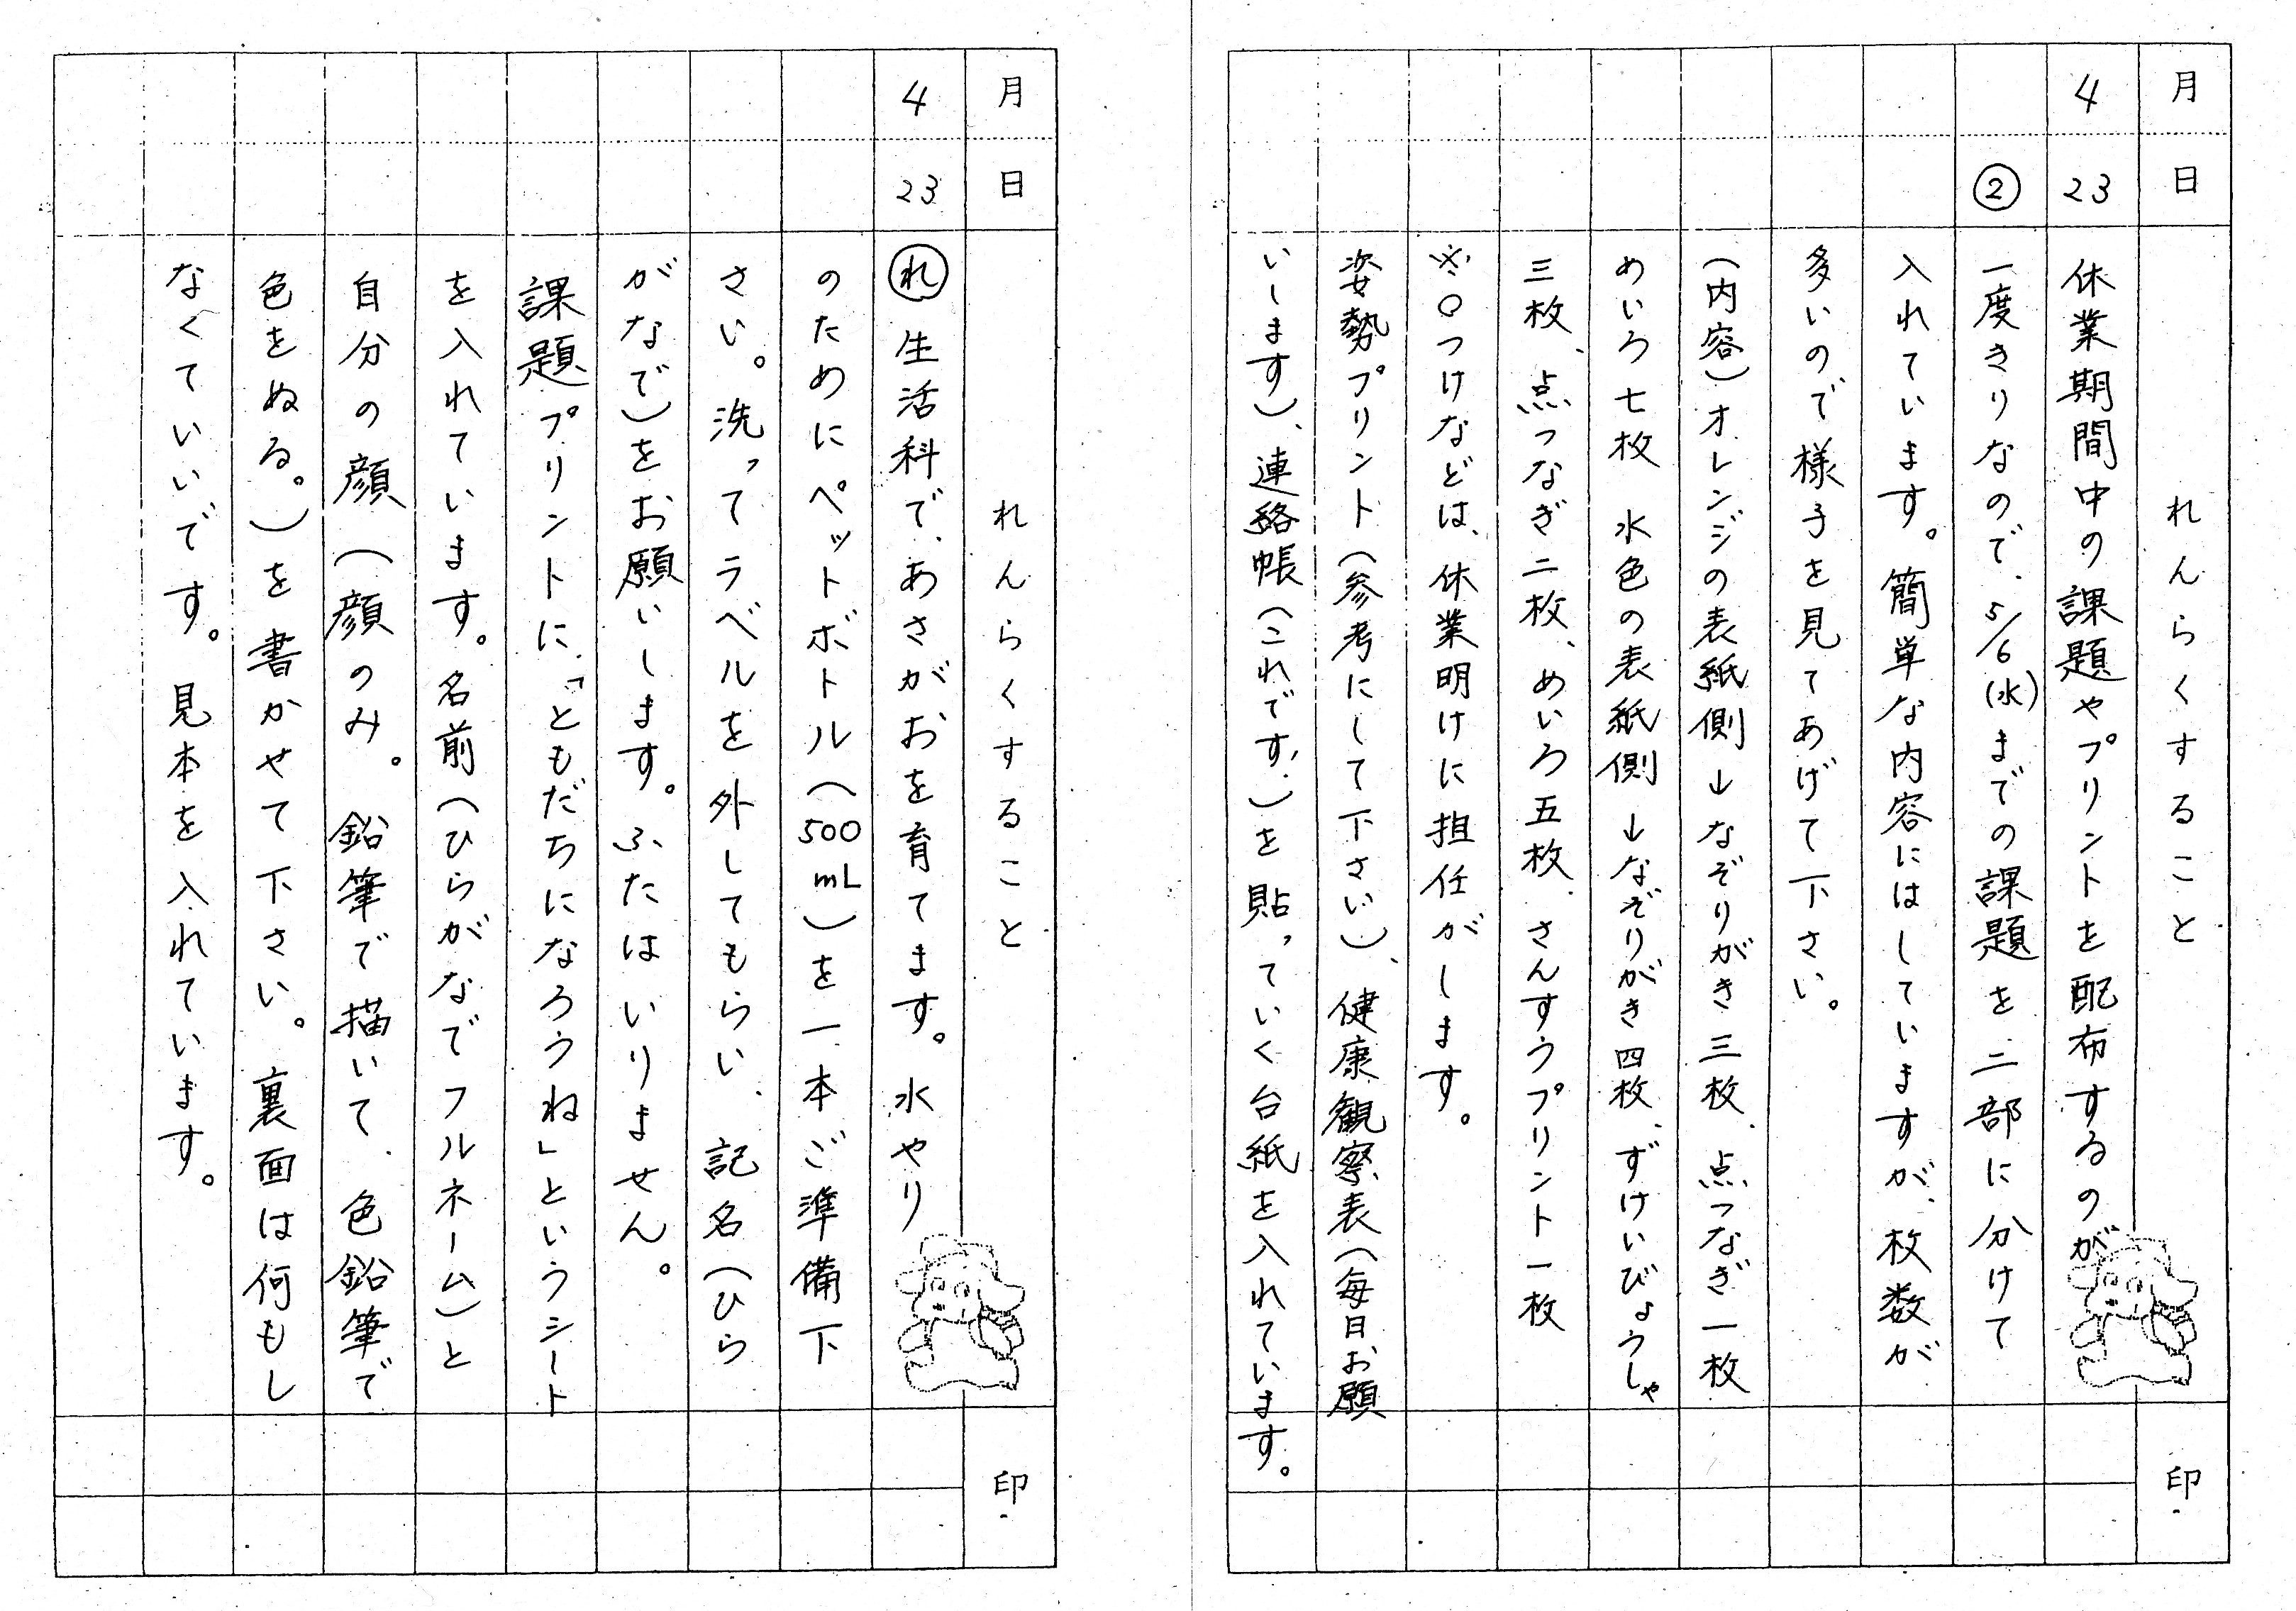 月 日 れんらくすること 印
4 23 休業期間中の課題やプリントを配布するのが
② 一度きりなので、5/6(水)までの課題を二部に分けて
入れています。簡単な内容にはしていますが、枚数が
多いので様子を見てあげて下さい。
(内容)オレンジの表紙側→なぞりがき三枚、点つなぎ一枚
めいろ七枚 水色の表紙側→なぞりがき四枚、ずけいびょうしゃ
三枚、点つなぎ二枚、めいろ五枚、さんすうプリント一枚
※○つけなどは、休業明けに担任がします。
姿勢プリント(参考にして下さい)、健康観察表(毎日お願
いします)、連絡帳(これです。)を貼っていく台紙を入れています。
月 日 れんらくすること 印
4 23 れ 生活科で、あさがおを育てます。水やり
のためにペットボトル(500mL)を一本ご準備下
さい。洗ってラベルを外してもらい、記名(ひら
がなで)をお願いします。ふたはいりません。
課題プリントに、「ともだちになろうね」というシート
を入れています。名前(ひらがなでフルネーム)と
自分の顔(顔のみ。鉛筆で描いて、色鉛筆で
色をぬる。)を書かせて下さい。裏面は何もし
なくていいです。見本を入れています。